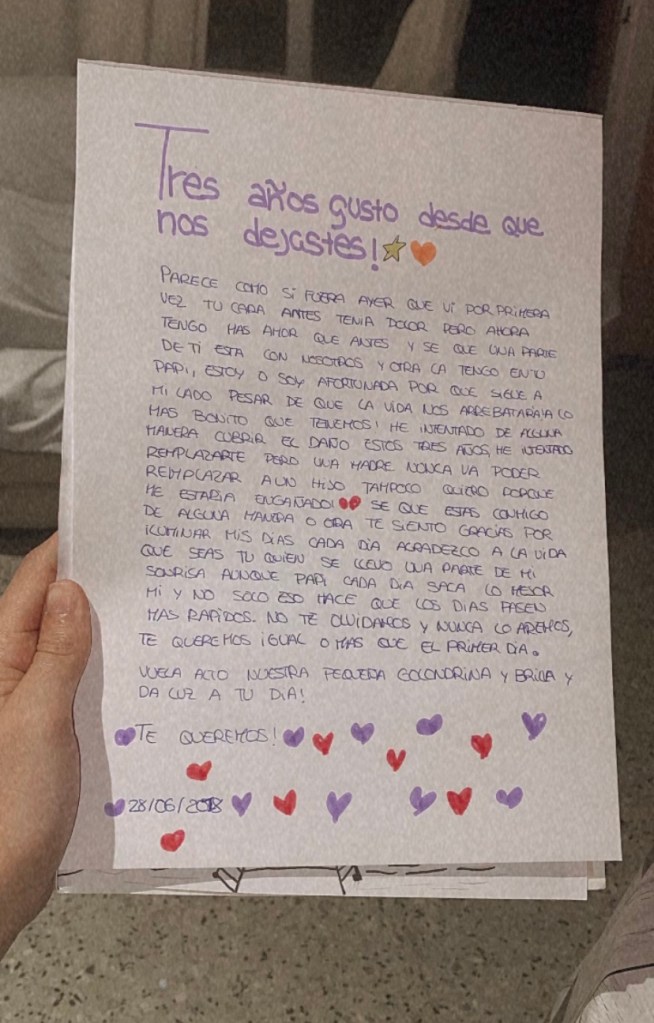 Tres años gusto desde que
nos dejastes!
PARECE COMO SI FUERA AYER QUE VI POR PRIMERA
VEZ TU CARA ANTES TENIA DOLOR PERO AHORA
TENGO MAS AMOR QUE ANTES Y SE QUE UNA PARTE
DE TI ESTA CON NOSOTROS Y OTRA LA TENGO EN TU
PAPI, ESTOY O SOY AFORTUNADA POR QUE SIGUE A
MI LADO PESAR DE QUE LA VIDA NOS ARREBATARA LO
MAS BONITO QUE TENEMOS! HE INTENTADO DE ALGUNA
MANERA CUBRIR EL DAÑO ESTOS TRES AÑOS, HE INTENTADO
REMPLAZARTE PERO UNA MADRE NUNCA VA PODER
REMPLAZAR A UN HIJO TAMPOCO QUIERO PORQUE
ME ESTARIA ENGAÑADO! SE QUE ESTAS CONMIGO
DE ALGUNA MANERA O OTRA TE SIENTO GRACIAS POR
ILUMINAR MIS DIAS CADA DIA AGRADEZCO A LA VIDA
QUE SEAS TU QUIEN SE LLEVO UNA PARTE DE MI
SONRISA AUNQUE PAPI CADA DIA SACA LO MEJOR
MI Y NO SOLO ESO HACE QUE LOS DIAS PASEN
MAS RAPIDOS. NO TE OLVIDAMOS Y NUNCA LO AREMOS,
TE QUEREMOS IGUAL O MAS QUE EL PRIMER DIA.
VUELA ALTO NUESTRA PEQUEÑA GOLONDRINA Y BRILLA Y
DA LUZ A TU DIA!
TE QUEREMOS!
28/06/2018